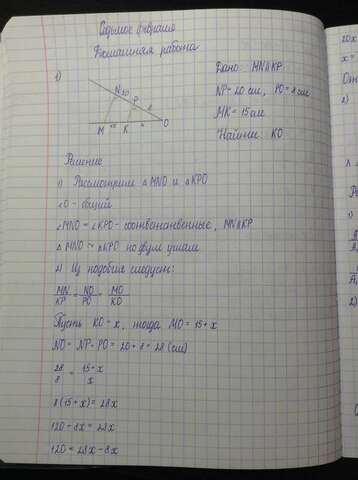 Седьмое февраля
Домашняя работа
1)
Дано: MN∥KP
NP = 20 см, PO = 8 см
MK = 15 см
Найти: KO
N 20 P 8
M 15 K x O
Решение
1) Рассмотрим △ MNO и △ KPO
∠O - общий
∠MNO = ∠KPO - соответственные, MN∥KP
△ MNO ~ △ KPO по двум углам
2) Из подобия следует:
MN/KP = NO/PO = MO/KO
Пусть KO = x, тогда MO = 15 + x
NO = NP - PO = 20 + 8 = 28 (см)
28/8 = 15 + x/x
8(15 + x) = 28x
120 - 8x = 28x
120 = 28x - 8x
20x
x =
От
2)